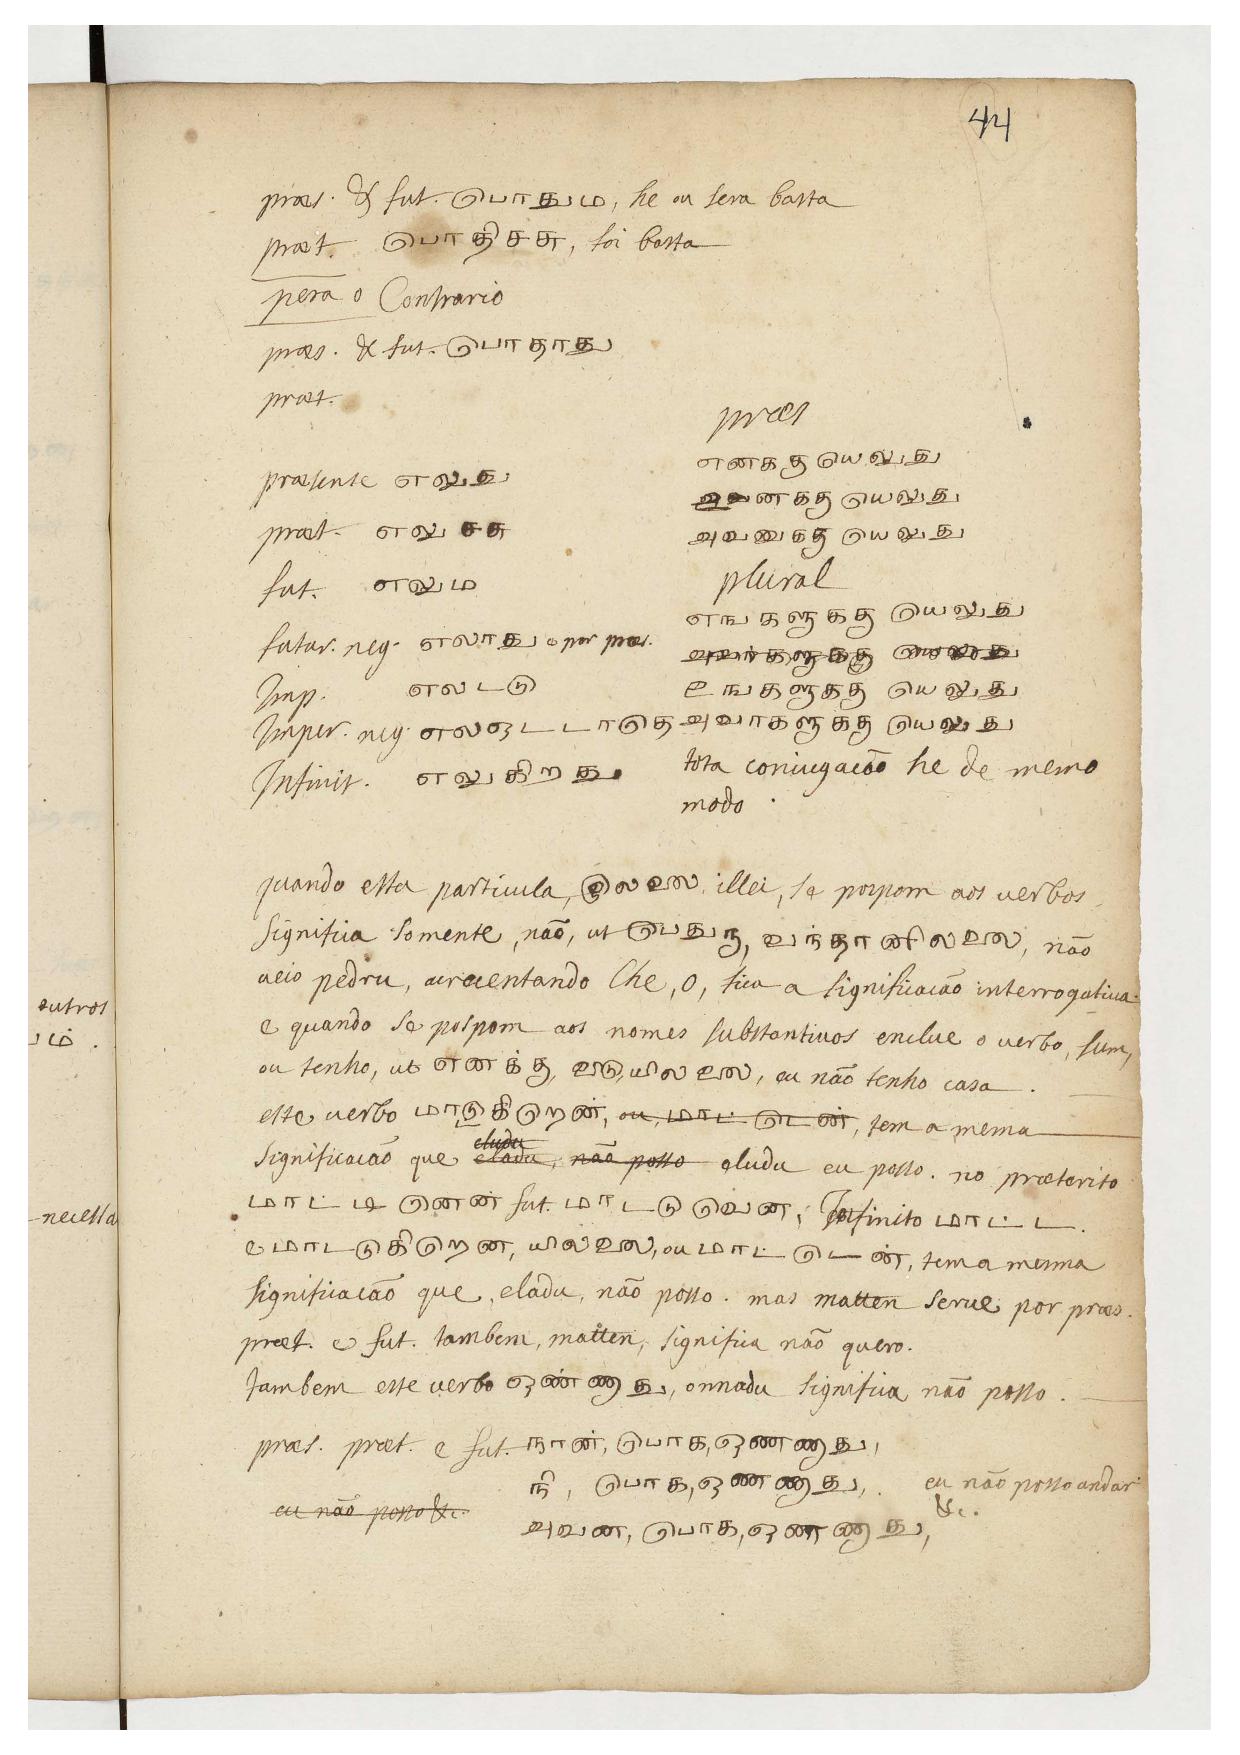 44
præs. & fut. பொதும, he ou sera basta
præt. பொதிசசு, foi basta
pera o Contrario
præs. & fut. பொதாது
præt.
præsente எலுது
præt. எலுசசு
fut. எலும
futur. neg. எலாது e por præs.
Imp. எலடடு
Imper. neg. எலஒடடாதெ
Infinit. எலுகிறது
præs
எனகத யெலுது
உனகத யெலுது
அவனுகத யெலுது
plural
எஙகளுகத யெலுது
அவர்களுகத யெலுது
உஙகளுகத யெலுது
அவாகளுகத யெலுது
tota coniugacaõ he de memo
modo.
quando esta particula, இலலை, illei, se pospom aos verbos
significa somente, naõ, ut பெதுரு, வந்தானிலலை, naõ
veio pedru, acrecentando lhe, o, fica a significacaõ interrogativa
e quando se pospom aos nomes substantivos enclue o verbo, sum,
ou tenho, ut எனக்கு, வீடு, யிலலை, eu naõ tenho casa.
este verbo மாடுகிறென், ou, மாட்டென், tem a mema
significacaõ que eladu, naõ posso eludu eu posso. no præterito
eludu
மாட்டினென் fut. மாடடுவென, Infinito மாட்ட.
e மாடடுகிறென, யிலலை, ou மாட்டென், tem a mesma
significacaõ que, eladu, naõ posso. mas matten serue por præs.
præt. e fut. tambem, matten, significa naõ quero.
tambem este verbo ஒண்ணுது, onnadu significa naõ posso.
præs. præt. e fut. நான், பொக, ஒணணுது,
நி, பொக, ஒணணுது, . eu naõ posso andar
&c.
eu naõ posso &c.
அவன, பொக, ஒணணுது,
outros
ும் .
necessa